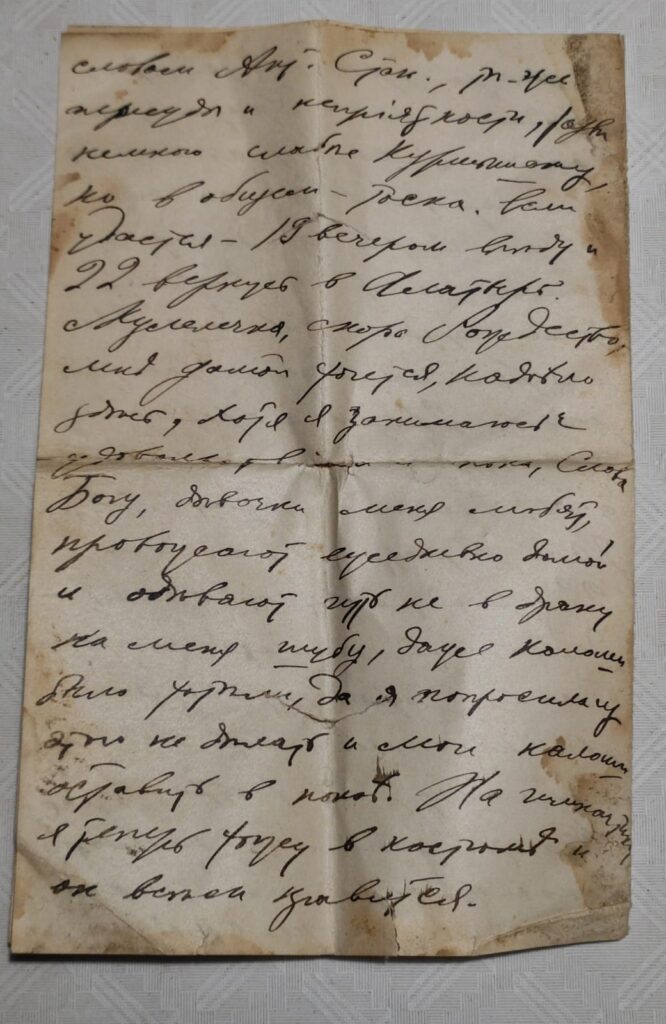 словам Ант. Стан., те-же
пересуды и непріятности,
немного слабѣе Курмышскихъ,
но в общем – тоска. Если
удастся – 19 вечером выѣду и
22 вернусь в Алатырь.
скоро Рождество,
мнѣ домой хочется, надоѣло
здѣсь, хотя я занимаюсь с
и пока, Слава
Богу, дѣвочки меня любят,
провожают ежедневно домой
и одѣвают чуть не в драку
на меня шубу, даже калоши
было хотѣли, да я попросила их
этого не дѣлать и мои калоши
оставить в покоѣ. На гимнастику
я теперь хожу в костюмѣ и
он всѣм нравится.